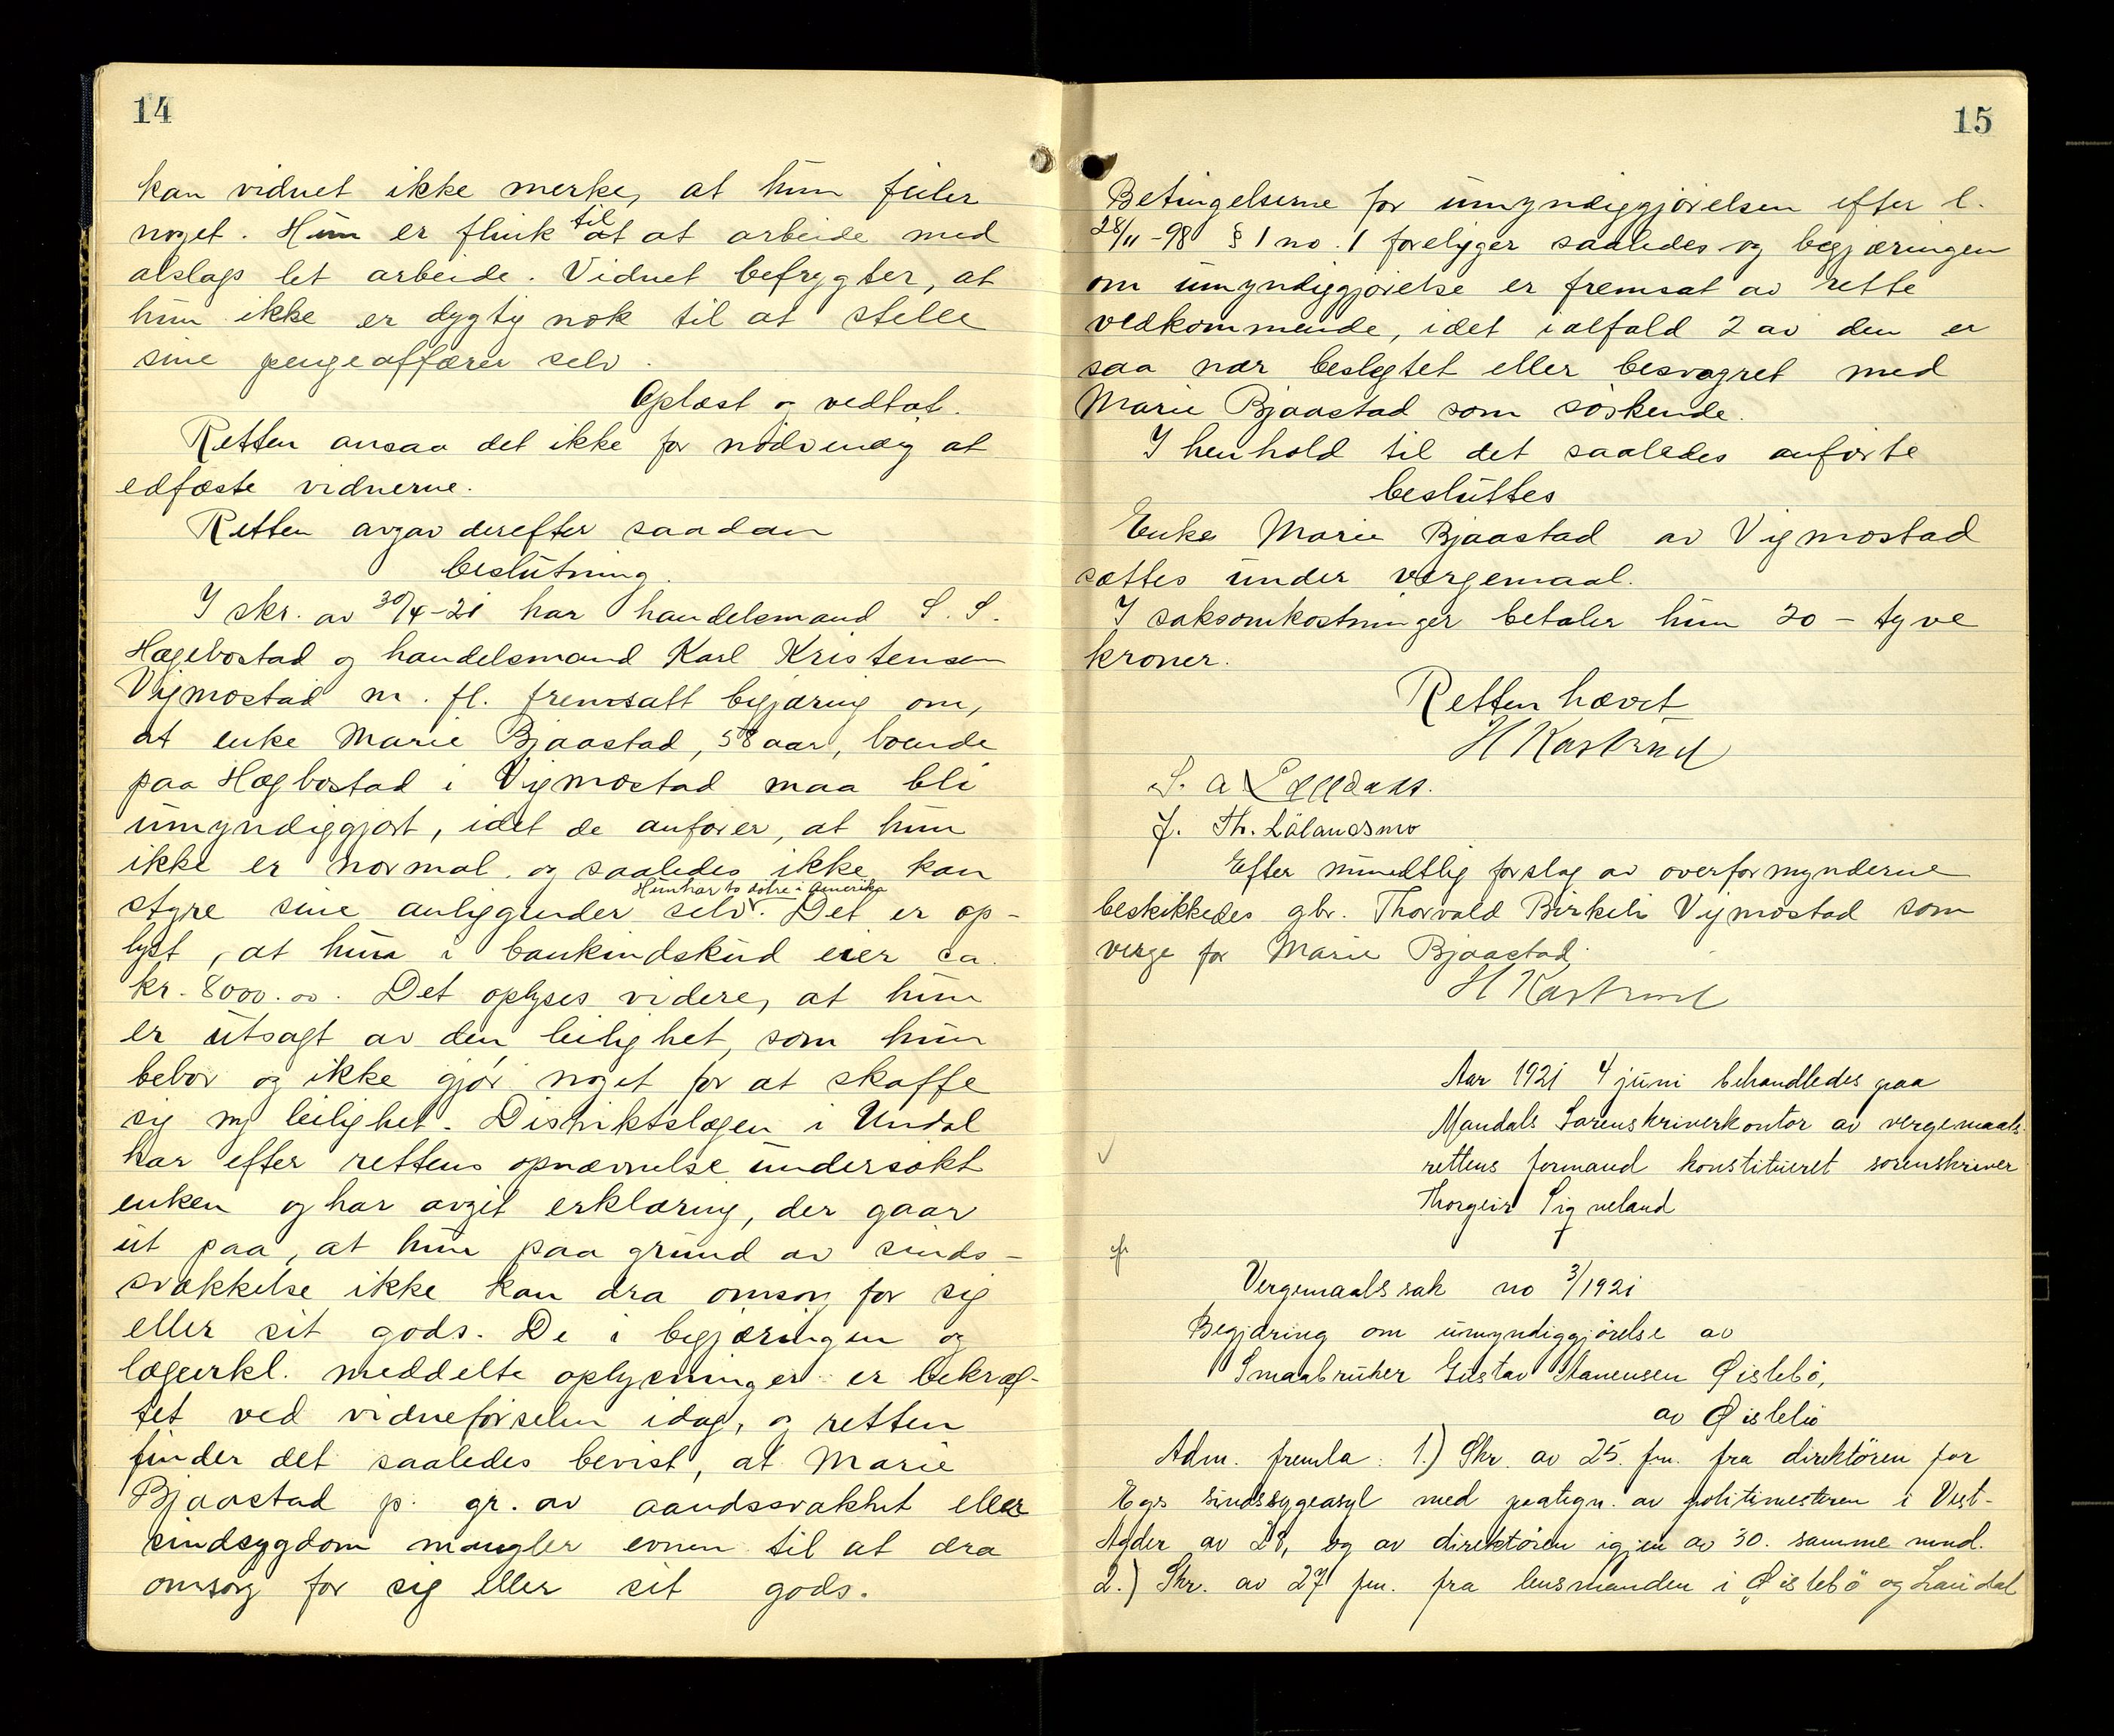 14
kan vidnet ikke merke, at hun feiler
noget. Hun er flink til at at arbeide med
alslags let arbeide. Vidnet befrygter, at
hun ikke er dygtig nok til at stelle
sine pengeaffærer selv.
Oplæst og vedtat.
Retten ansaa det ikke for nødvendig at
edfæste vidnerne.
Retten avgav derefter saadan
beslutning.
I skr. av 30/4-21 har handelsmand S. S.
Hægebostad og handelsmand Karl Kristensen
Vigmostad m. fl. fremsatt begjæring om,
at enke Marie Bjaastad, 58 aar, boende
paa Hægbostad i Vigmostad maa bli
umyndiggjort, idet de anfører, at hun
ikke er normal og saaledes ikke kan
Hun har to døtre i Amerika
styre sine anliggender selv. Det er op-
lyst, at hun i bankindskud eier ca.
kr. 8000.00. Det oplyses videre, at hun
er utsagt av den leilighet, som hun
bebor og ikke gjør noget for at skaffe
sig ny leilighet. Distriktslægen i Undal
har efter rettens opnævnelse undersøkt
enken og har avgit erklæring, der gaar
ut paa, at hun paa grund av sinds-
svækkelse ikke kan dra omsorg for sig
eller sit gods. De i begjæringen og
lægeerkl. meddelte oplysninger er bekræf-
tet ved vidneførselen idag, og retten
finder det saaledes bevist, at Marie
Bjaastad p. gr. av aandssvakhet eller
sindsygdom mangler evnen til at dra
omsorg for sig eller sit gods.
15
Betingelserne for umyndiggjørelsen efter l.
28/11-98 § 1 no. 1 foreligger saaledes og begjæringen
om umyndiggjørelse er fremsat av rette
vedkommende, idet ialfald 2 av den er
saa nær beslegtet eller besvogret med
Marie Bjaastad som søskende.
I henhold til det saaledes anførte
besluttes
Enke Marie Bjaastad av Vigmostad
sættes under vergemaal.
I saksomkostninger betaler hun 20 - tyve
kroner.
Retten hævet
H Kastrud
S. A.
J. Th. Lälandsmo
Efter mundtlig forslag av overformynderne
beskikkedes gbr. Thorvald Birkeli Vigmostad som
verge for Marie Bjaastad.
H Kastrud
Aar 1921 4 juni behandledes paa
Mandals Sorenskriverkontor av vergemaals-
rettens formand konstitueret sorenskriver
Thorgeir Signeland
Vergemaalssak no 3/1921
Begjæring om umyndiggjørelse av
Smaabruker Gustav Aanensen Øislebö,
av Øislebö
Adm. fremla: 1.) Skr. av 25. fm. fra direktören for
Egs sindssygeasyl med paategn. av politimesteren i Vest-
Agder av 28, og av direktören igjen av 30. samme mnd.
2.) Skr. av 27 fm. fra lensmanden i Øislebö og Laudal